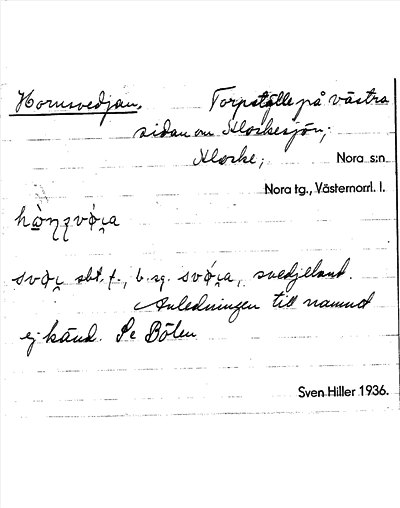 Hornsvedjan. Torpställe på västra
sidan om Klockesjön;
Klocke; Nora s:n
Nora tg., Västernorrl. l.
sbt. f., b. sg. svedjeland.
Anledningen till namnet
ej känd. Se Bölen
Sven Hiller 1936.